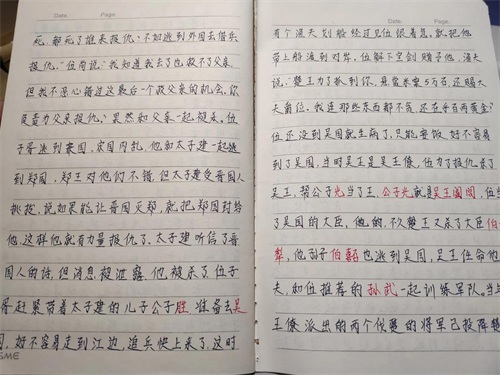 Date. Page.
死, 都死了谁来报仇. 不如逃到外国去借兵
报仇." 伍尚说:"我知道我去了也救不了父亲.
但我不忍心错过这最后一个救父亲的机会, 你
负责为父亲报仇." 果然和父亲一起被杀. 伍
子胥逃到宋国, 宋国内乱, 他和太子建一起逃
到郑国, 郑王对他们不错, 但太子建受晋国人
挑拨, 说如果能让晋国灭郑, 就把郑国封给
他, 这样他就有力量报仇了, 太子建听信了晋
国人的话, 但消息被泄露, 他被杀了. 伍子
胥赶紧带着太子建的儿子公子胜, 准备去吴
国, 好不容易走到江边, 追兵快上来了, 这时
Date. Page.
有个渔夫划船经过见伍很着急, 就把他
带上船渡到对岸, 伍解下宝剑赠予他, 渔夫
说:"楚王为了抓到你, 悬赏米粟5万石, 还赐大
夫爵位. 我连那些东西都不贪, 还在乎百两黄金?
伍还没到吴国就生病了, 只能要饭. 好不容易
到了吴国, 当时吴王是吴王僚, 伍为了报仇杀了
吴王, 帮公子光当了王, 公子光就是吴王阖闾, 伍当
了吴国的大臣, 他的, 不久楚王又杀了大臣伯
犁, 他孙子伯嚭也逃到吴国, 吴王任命他
夫, 和伍推荐的孙武一起训练军队, 当
王僚派出的两个伐楚的将军已投降楚